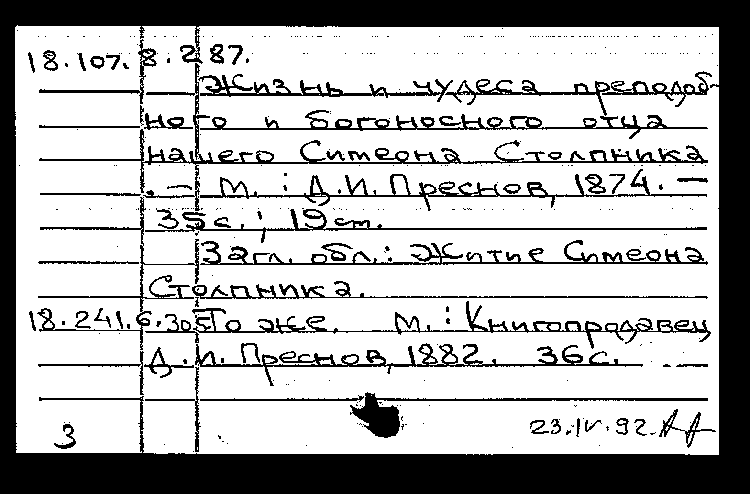 18.107.8.287.
Жизнь и чудеса преподоб-
ного и богоносного отца
нашего Симеона Столпника
. — М. : Д.И. Преснов, 1874. —
35 с. ; 19 см.
Загл. обл.: Житие Симеона
Столпника.
18.241.6.305 То же. М. : Книгопродавец
Д.И. Преснов, 1882. 36 с.
3
23.IV.92.